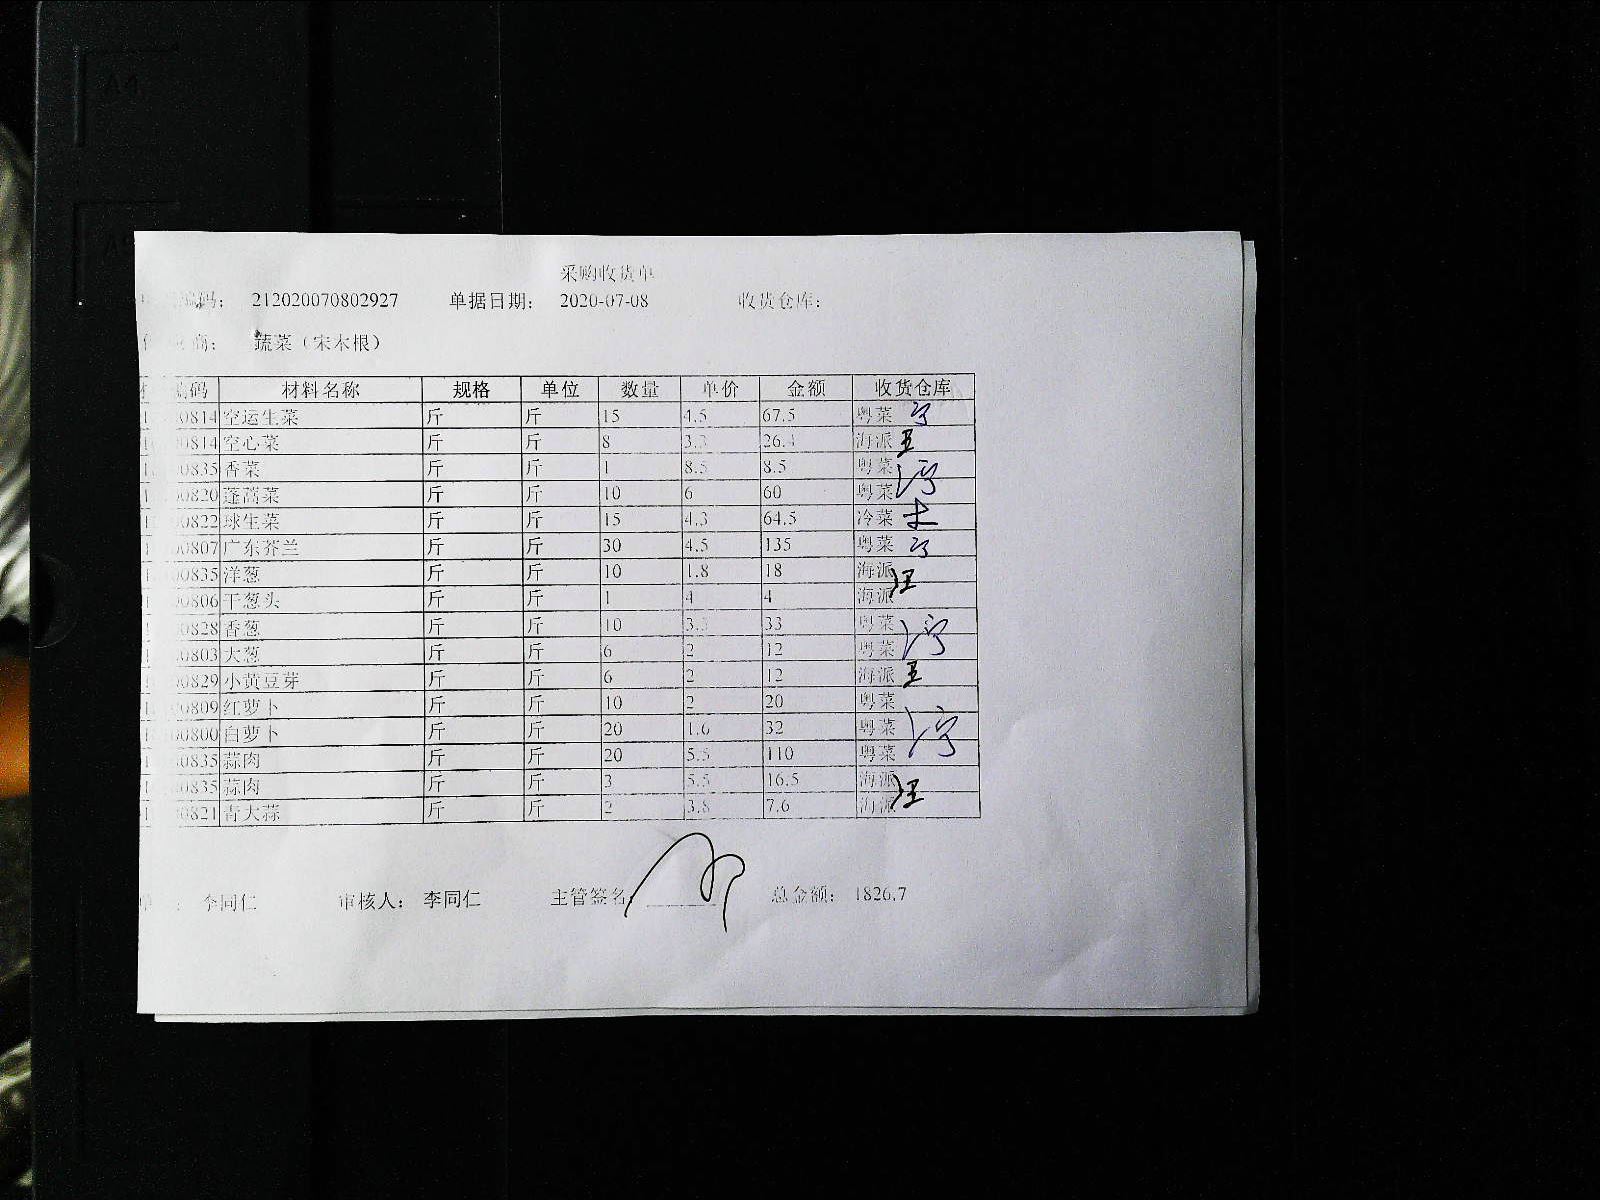 采购收货单
编码： 212020070802927 单据日期： 2020-07-08 收货仓库：
商： 蔬菜（宋木根）
编码 材料名称 规格 单位 数量 单价 金额 收货仓库
00814 空运生菜 斤 斤 15 4.5 67.5 粤菜
00814 空心菜 斤 斤 8 3.3 26.4 海派
00835 香菜 斤 斤 1 8.5 8.5 粤菜
00820 蓬蒿菜 斤 斤 10 6 60 粤菜
00822 球生菜 斤 斤 15 4.3 64.5 冷菜
00807 广东芥兰 斤 斤 30 4.5 135 粤菜
00835 洋葱 斤 斤 10 1.8 18 海派
00806 干葱头 斤 斤 1 4 4 海派
00828 香葱 斤 斤 10 3.3 33 粤菜
00803 大葱 斤 斤 6 2 12 粤菜
00829 小黄豆芽 斤 斤 6 2 12 海派
00809 红萝卜 斤 斤 10 2 20 粤菜
00800 白萝卜 斤 斤 20 1.6 32 粤菜
00835 蒜肉 斤 斤 20 5.5 110 粤菜
00835 蒜肉 斤 斤 3 5.5 16.5 海派
00821 青大蒜 斤 斤 2 3.8 7.6 海派
单 ： 李同仁 审核人： 李同仁 主管签名： 总金额： 1826.7